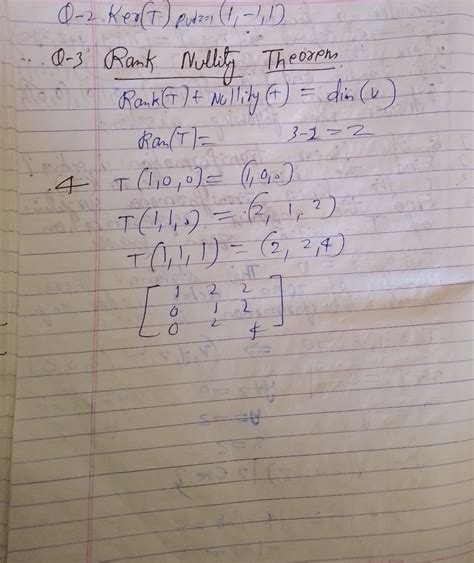 Q-2. Ker(T) put z=1 (1, -1, 1)
Q-3 Rank Nullity Theorem
Rank(T) + Nullity(T) = dim(V)
Ran(T) = 3-1 = 2
4 T(1,0,0) = (1,0,0)
T(1,1,0) = (2, 1, 2)
T(1,1,1) = (2, 2, 4)
[ 1 2 2
0 1 2
0 2 4 ]